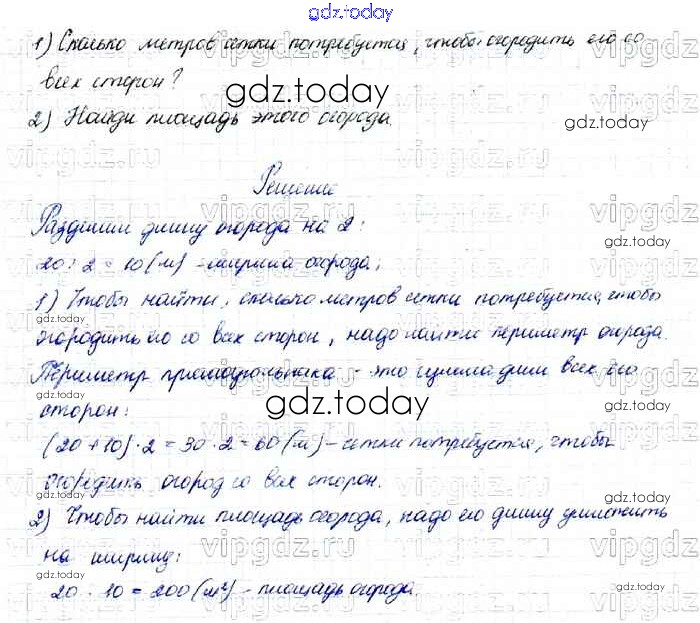 gdz.today
1) Сколько метров сетки потребуется, чтобы огородить его со
всех сторон?
gdz.today
2) Найди площадь этого огорода.
gdz.today
vipgdz.ru vipgdz.ru vipgdz
Решение
Разделим длину огорода на 2:
gdz.today
20 : 2 = 10 (м) - ширина огорода;
gdz.today
1) Чтобы найти, сколько метров сетки потребуется, чтобы
огородить его со всех сторон, надо найти периметр огорода.
Периметр прямоугольника - это сумма длин всех его
gdz.today
сторон:
gdz.today
(20 + 10) · 2 = 30 · 2 = 60 (м) - сетки потребуется, чтобы
огородить огород со всех сторон.
gdz.today
2) Чтобы найти площадь огорода, надо его длину умножить
на ширину:
gdz.today
20 · 10 = 200 (м²) - площадь огорода.
gdz.today